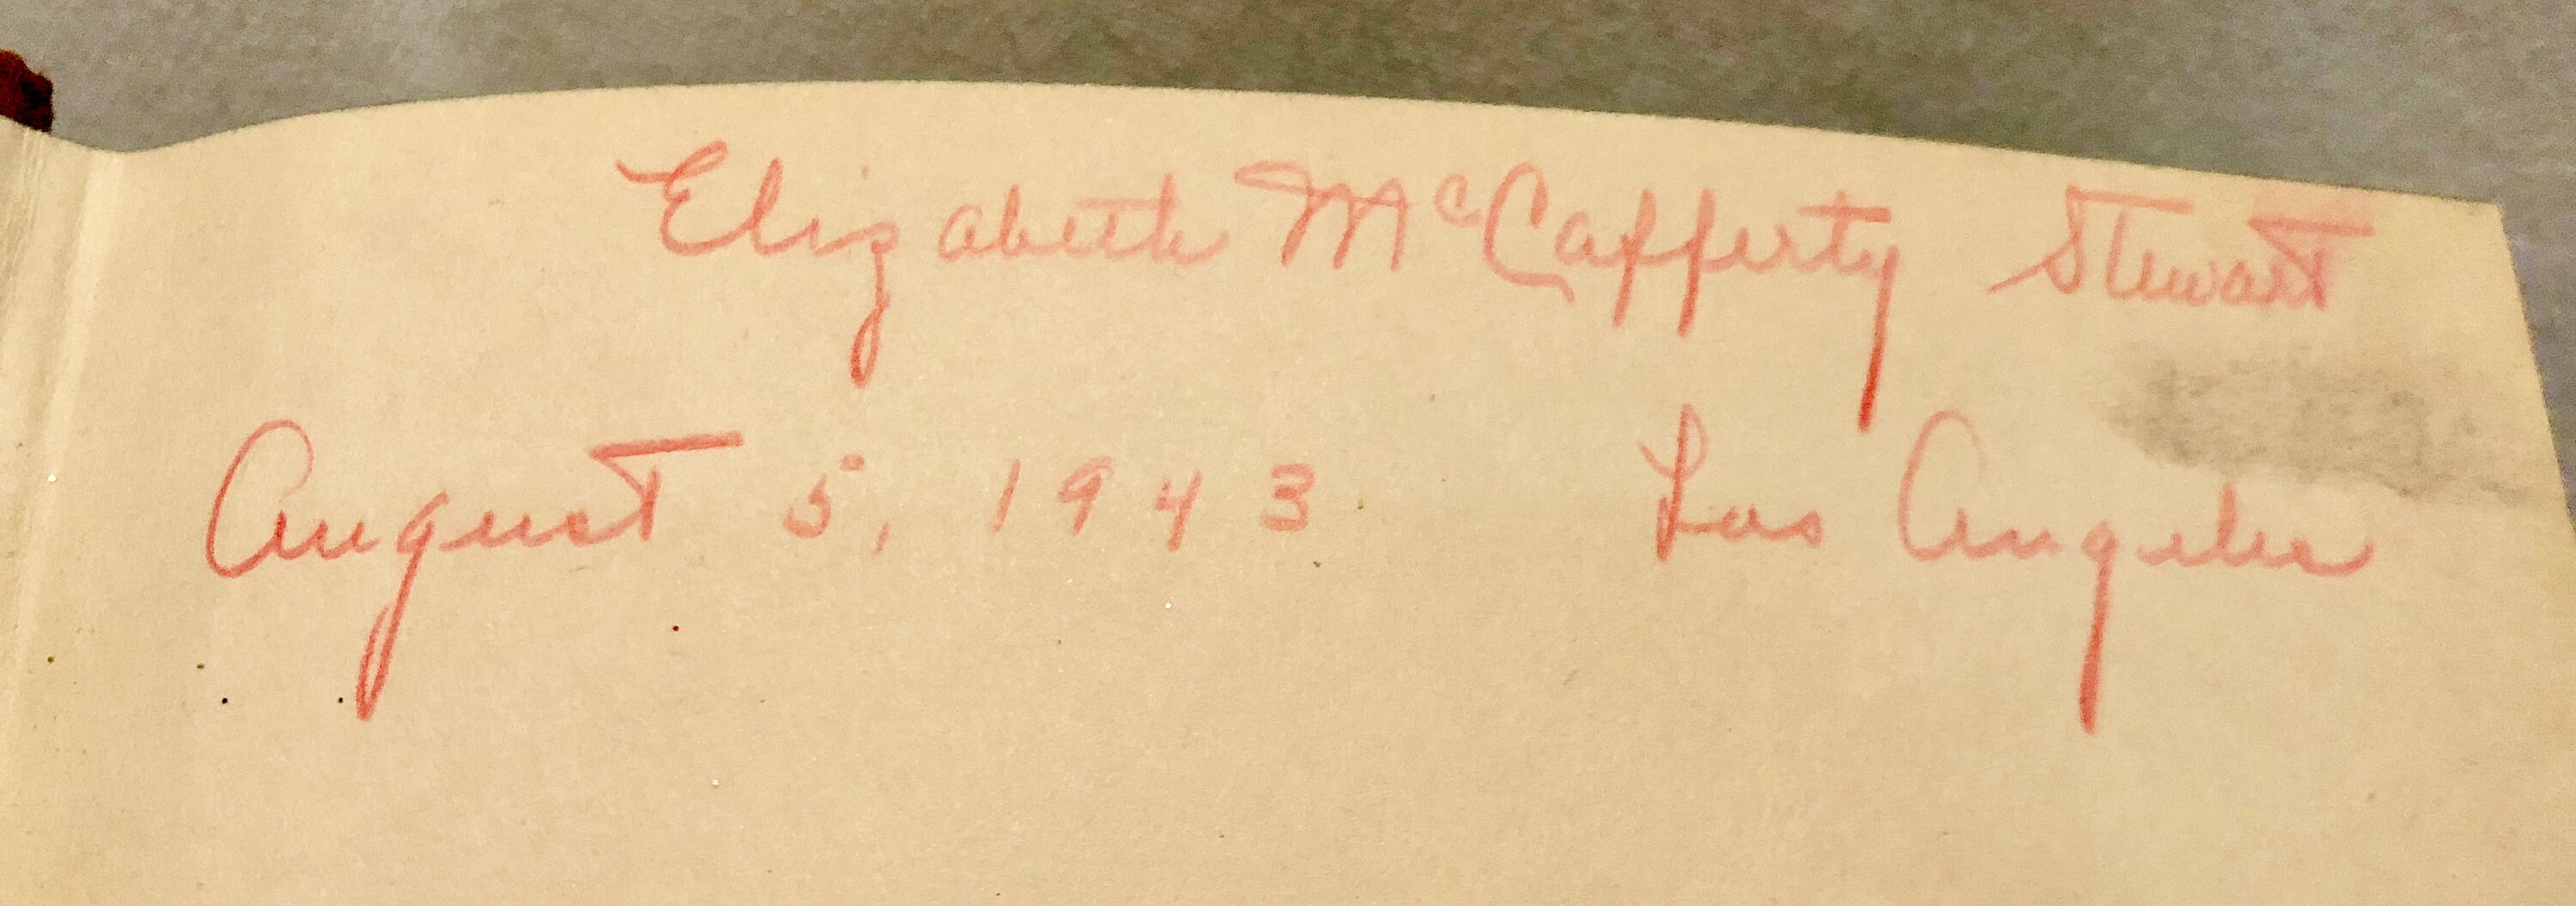 Elizabeth McCafferty Stewart
August 5, 1943 Los Angeles